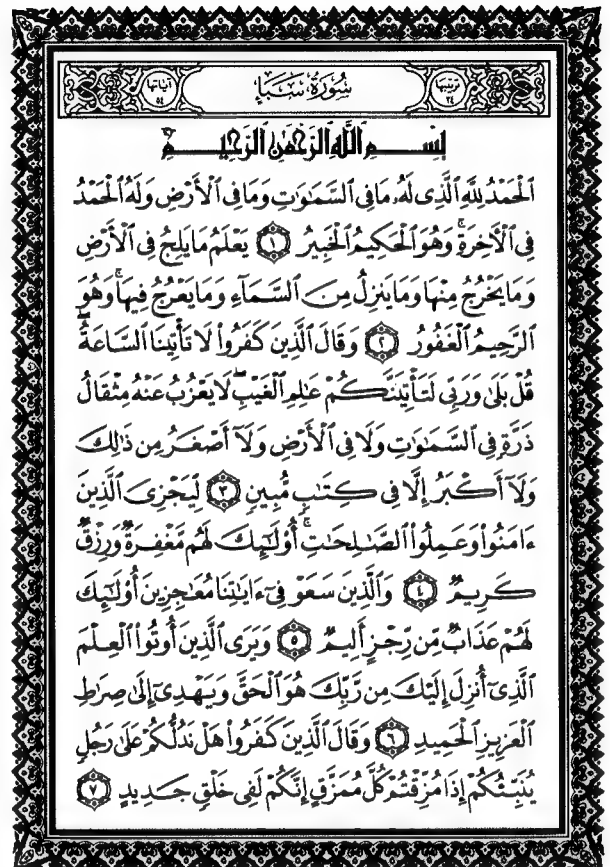 ترتيبها ٣٤ سُورَةُ سَبَإٍ آياتها ٥٤
بِسْمِ ٱللَّهِ ٱلرَّحْمَٰنِ ٱلرَّحِيمِ
ٱلْحَمْدُ لِلَّهِ ٱلَّذِى لَهُۥ مَا فِى ٱلسَّمَٰوَٰتِ وَمَا فِى ٱلْأَرْضِ وَلَهُ ٱلْحَمْدُ
فِى ٱلْـَٔاخِرَةِ ۚ وَهُوَ ٱلْحَكِيمُ ٱلْخَبِيرُ ١ يَعْلَمُ مَا يَلِجُ فِى ٱلْأَرْضِ
وَمَا يَخْرُجُ مِنْهَا وَمَا يَنزِلُ مِنَ ٱلسَّمَآءِ وَمَا يَعْرُجُ فِيهَا ۚ وَهُوَ
ٱلرَّحِيمُ ٱلْغَفُورُ ٢ وَقَالَ ٱلَّذِينَ كَفَرُوا۟ لَا تَأْتِينَا ٱلسَّاعَةُ ۖ
قُلْ بَلَىٰ وَرَبِّى لَتَأْتِيَنَّكُمْ عَٰلِمِ ٱلْغَيْبِ ۖ لَا يَعْزُبُ عَنْهُ مِثْقَالُ
ذَرَّةٍ فِى ٱلسَّمَٰوَٰتِ وَلَا فِى ٱلْأَرْضِ وَلَآ أَصْغَرُ مِن ذَٰلِكَ
وَلَآ أَكْبَرُ إِلَّا فِى كِتَٰبٍ مُّبِينٍ ٣ لِّيَجْزِىَ ٱلَّذِينَ
ءَامَنُوا۟ وَعَمِلُوا۟ ٱلصَّٰلِحَٰتِ ۚ أُو۟لَٰٓئِكَ لَهُم مَّغْفِرَةٌ وَرِزْقٌ
كَرِيمٌ ٤ وَٱلَّذِينَ سَعَوْ فِىٓ ءَايَٰتِنَا مُعَٰجِزِينَ أُو۟لَٰٓئِكَ
لَهُمْ عَذَابٌ مِّن رِّجْزٍ أَلِيمٌ ٥ وَيَرَى ٱلَّذِينَ أُوتُوا۟ ٱلْعِلْمَ
ٱلَّذِىٓ أُنزِلَ إِلَيْكَ مِن رَّبِّكَ هُوَ ٱلْحَقَّ وَيَهْدِىٓ إِلَىٰ صِرَٰطِ
ٱلْعَزِيزِ ٱلْحَمِيدِ ٦ وَقَالَ ٱلَّذِينَ كَفَرُوا۟ هَلْ نَدُلُّكُمْ عَلَىٰ رَجُلٍ
يُنَبِّئُكُمْ إِذَا مُزِّقْتُمْ كُلَّ مُمَزَّقٍ إِنَّكُمْ لَفِى خَلْقٍ جَدِيدٍ ٧